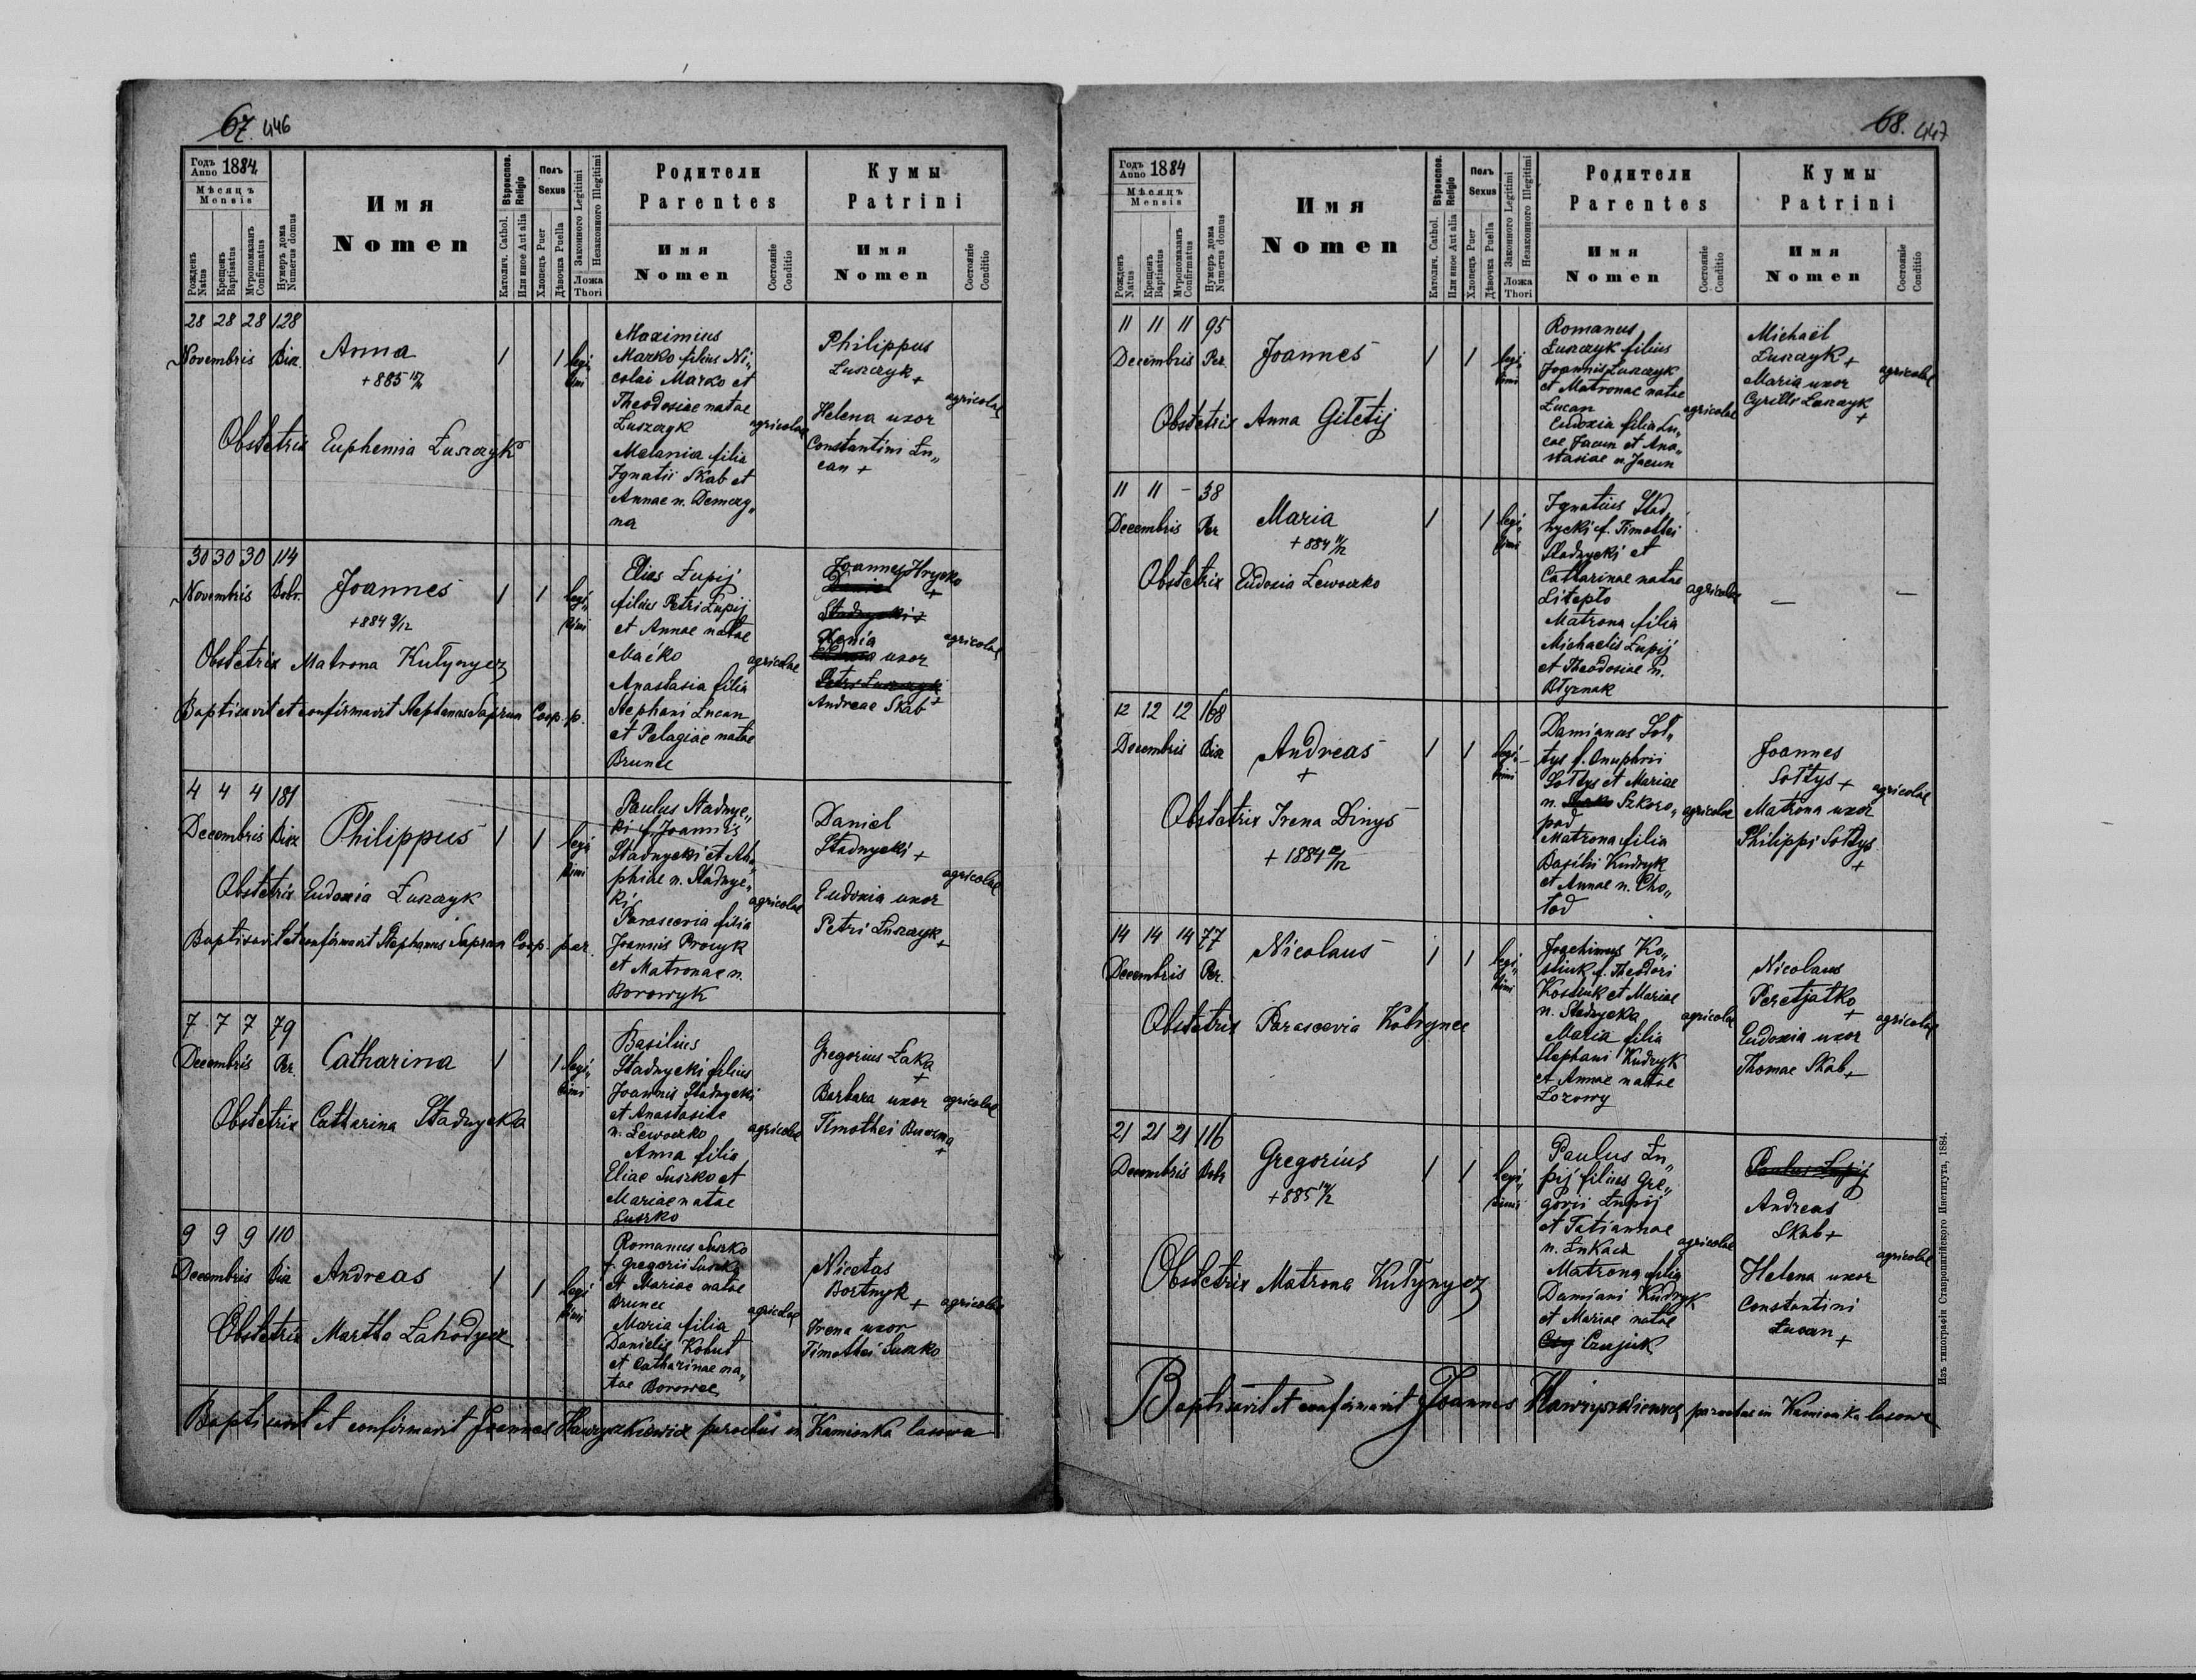 67. 446
Годъ Anno 1884
Мѣсяцъ Mensis
Рожденъ Natus
Крещенъ Baptisatus
Муропомазанъ Confirmatus
Нумеръ дома Numerus domus
Имя Nomen
Вѣроиспов. Religio
Католич. Cathol.
Или иное Aut alia
Полъ Sexus
Хлопецъ Puer
Дѣвочка Puella
Законного Legitimi
Незаконного Illegitimi
Ложа Thori
Родители Parentes
Имя Nomen
Состояніе Conditio
Кумы Patrini
Имя Nomen
Состояніе Conditio
28 28 28 128
Novembris
Anna
+885
1 1 legi„
timi
Obstetrix Euphemia Łuszczyk
Maximius
Marko filius Ni„
colai Marko et
Theodosiae natae
Łuszczyk
Melania filia
Ignatii Skab et
Annae n. Demczy„
na
agricolae
Philippus
Łuszczyk +
Helena uxor
Constantini Łu„
can +
agricolae
30 30 30 114
Novembris Dobr.
Joannes
+884 9/12
1 1 legi„
timi
Obstetrix Matrona Kułynycz
Baptisavit et confirmavit Stephanus Sapran Coop. p.
Elias Łupij
filius Petri Łupij
et Annae natae
Maćko
Anastasia filia
Stephani Łucan
et Pelagiae natae
Brunec
agricolae
Joannes Hrycko
+
Daniel
Stadnycki +
Xenia
uxor
Petri Łuszczyk
Andreae Skab +
agricolae
4 4 4 181
Decembris
Philippus
1 1 legi
timi
Obstetrix Eudoxia Łuszczyk
Baptisavit et confirmavit Stephanus Sapran Coop. par.
Paulus Stadnyc„
ki f. Joannis
Stadnycki et
phiae n. Stadnyc„
ki
Parascevia filia
Joannis Procyk
et Matronae n.
Borowyk
agricolae
Daniel
Stadnycki +
Eudoxia uxor
Petri Łuszczyk +
agricolae
7 7 7 79
Decembris Per.
Catharina
1 1 legi„
timi
Obstetrix Catharina Stadnycka
Basilius
Stadnycki filius
Joannis Stadnycki
et Anastasiae
n. Lewoczko
Anna filia
Eliae Suszko et
Mariae natae
Suszko
agricolae
Gregorius Łaka
+
Barbara uxor
Timothei
+
agricolae
9 9 9 110
Decembris
Andreas
1 1 legi
timi
Obstetrix Martha
Romanus Suszko
f. Gregorii Suszko
et Mariae natae
Brunec
Maria filia
Danielis Kohut
et Catharinae na„
tae Borowec
agricolae
Nicetas
Bortnyk +
Irena uxor
Timothei Suszko
agricolae
Baptisavit et confirmavit Joannes Hawryszkiewicz parochus in Kamionka lasowa
68. 447
Годъ Anno 1884
Мѣсяцъ Mensis
Рожденъ Natus
Крещенъ Baptisatus
Муропомазанъ Confirmatus
Нумеръ дома Numerus domus
Имя Nomen
Вѣроиспов. Religio
Католич. Cathol.
Или иное Aut alia
Полъ Sexus
Хлопецъ Puer
Дѣвочка Puella
Законного Legitimi
Незаконного Illegitimi
Ложа Thori
Родители Parentes
Имя Nomen
Состояніе Conditio
Кумы Patrini
Имя Nomen
Состояніе Conditio
11 11 11 95
Decembris Per.
Joannes
1 1 legi„
timi
Obstetrix Anna Giletij
Romanus
Łuszczyk filius
Joannis Łuszczyk
et Matronae natae
Łucan
Eudoxia filia Lu„
cae Jacun et Ana„
stasiae n. Jacun
agricolae
Michael
Łuszczyk +
Maria uxor
Cyrilli Łuszczyk
+
agricolae
11 11 - 38
Decembris Per
Maria
+ 884 11/12
1 1 legi„
timi
Obstetrix Eudoxia Lewoczko
Ignatius Stad„
nycki f. Timothei
Stadnycki et
Catharinae natae
Litepło
Matrona filia
Michaelis Łupij
et Theodosiae n.
agricolae
— —
12 12 12 168
Decembris
Andreas
+
1 1 legi–
timi
Obstetrix Irena Dinys
+ 1884
Damianus Soł„
tys f. Onuphrii
Sołtys et Mariae
n. Szkoro„
pad
Matrona filia
Basilii Kudryk
et Annae n. Cho„
tod
agricolae
Joannes
Sołtys +
Matrona uxor
Philippi Sołtys
+
agricolae
14 14 14 77
Decembris Per.
Nicolaus
1 1 legi„
timi
Obstetrix Parascevia Kobrynec
Joachimus Ko„
stiuk f. Theodori
Kostiuk et Mariae
n. Stadnycka
Maria filia
Stephani Kudryk
et Annae natae
Lozowy
agricolae
Nicolaus
Peretjatko
+
Eudoxia uxor
Thomae Skab +
agricolae
21 21 21 116
Decembris Dobr
Gregorius
+885
1 1 legi„
timi
Obstetrix Matrona Kułynycz
Paulus Łu„
pij filius Gre„
gorii Łupij
et Tatiannae
n. Łukacz
Matrona filia
Damiani Kudryk
et Mariae natae
Czujuk
agricolae
Paulus Łupij
Andreas
Skab +
Helena uxor
Constantini
Łucan +
agricolae
Baptisavit et confirmavit Joannes Hawryszkiewicz parochus in Kamionka lasowa
Изъ типографіи Ставропигійского Института, 1884.